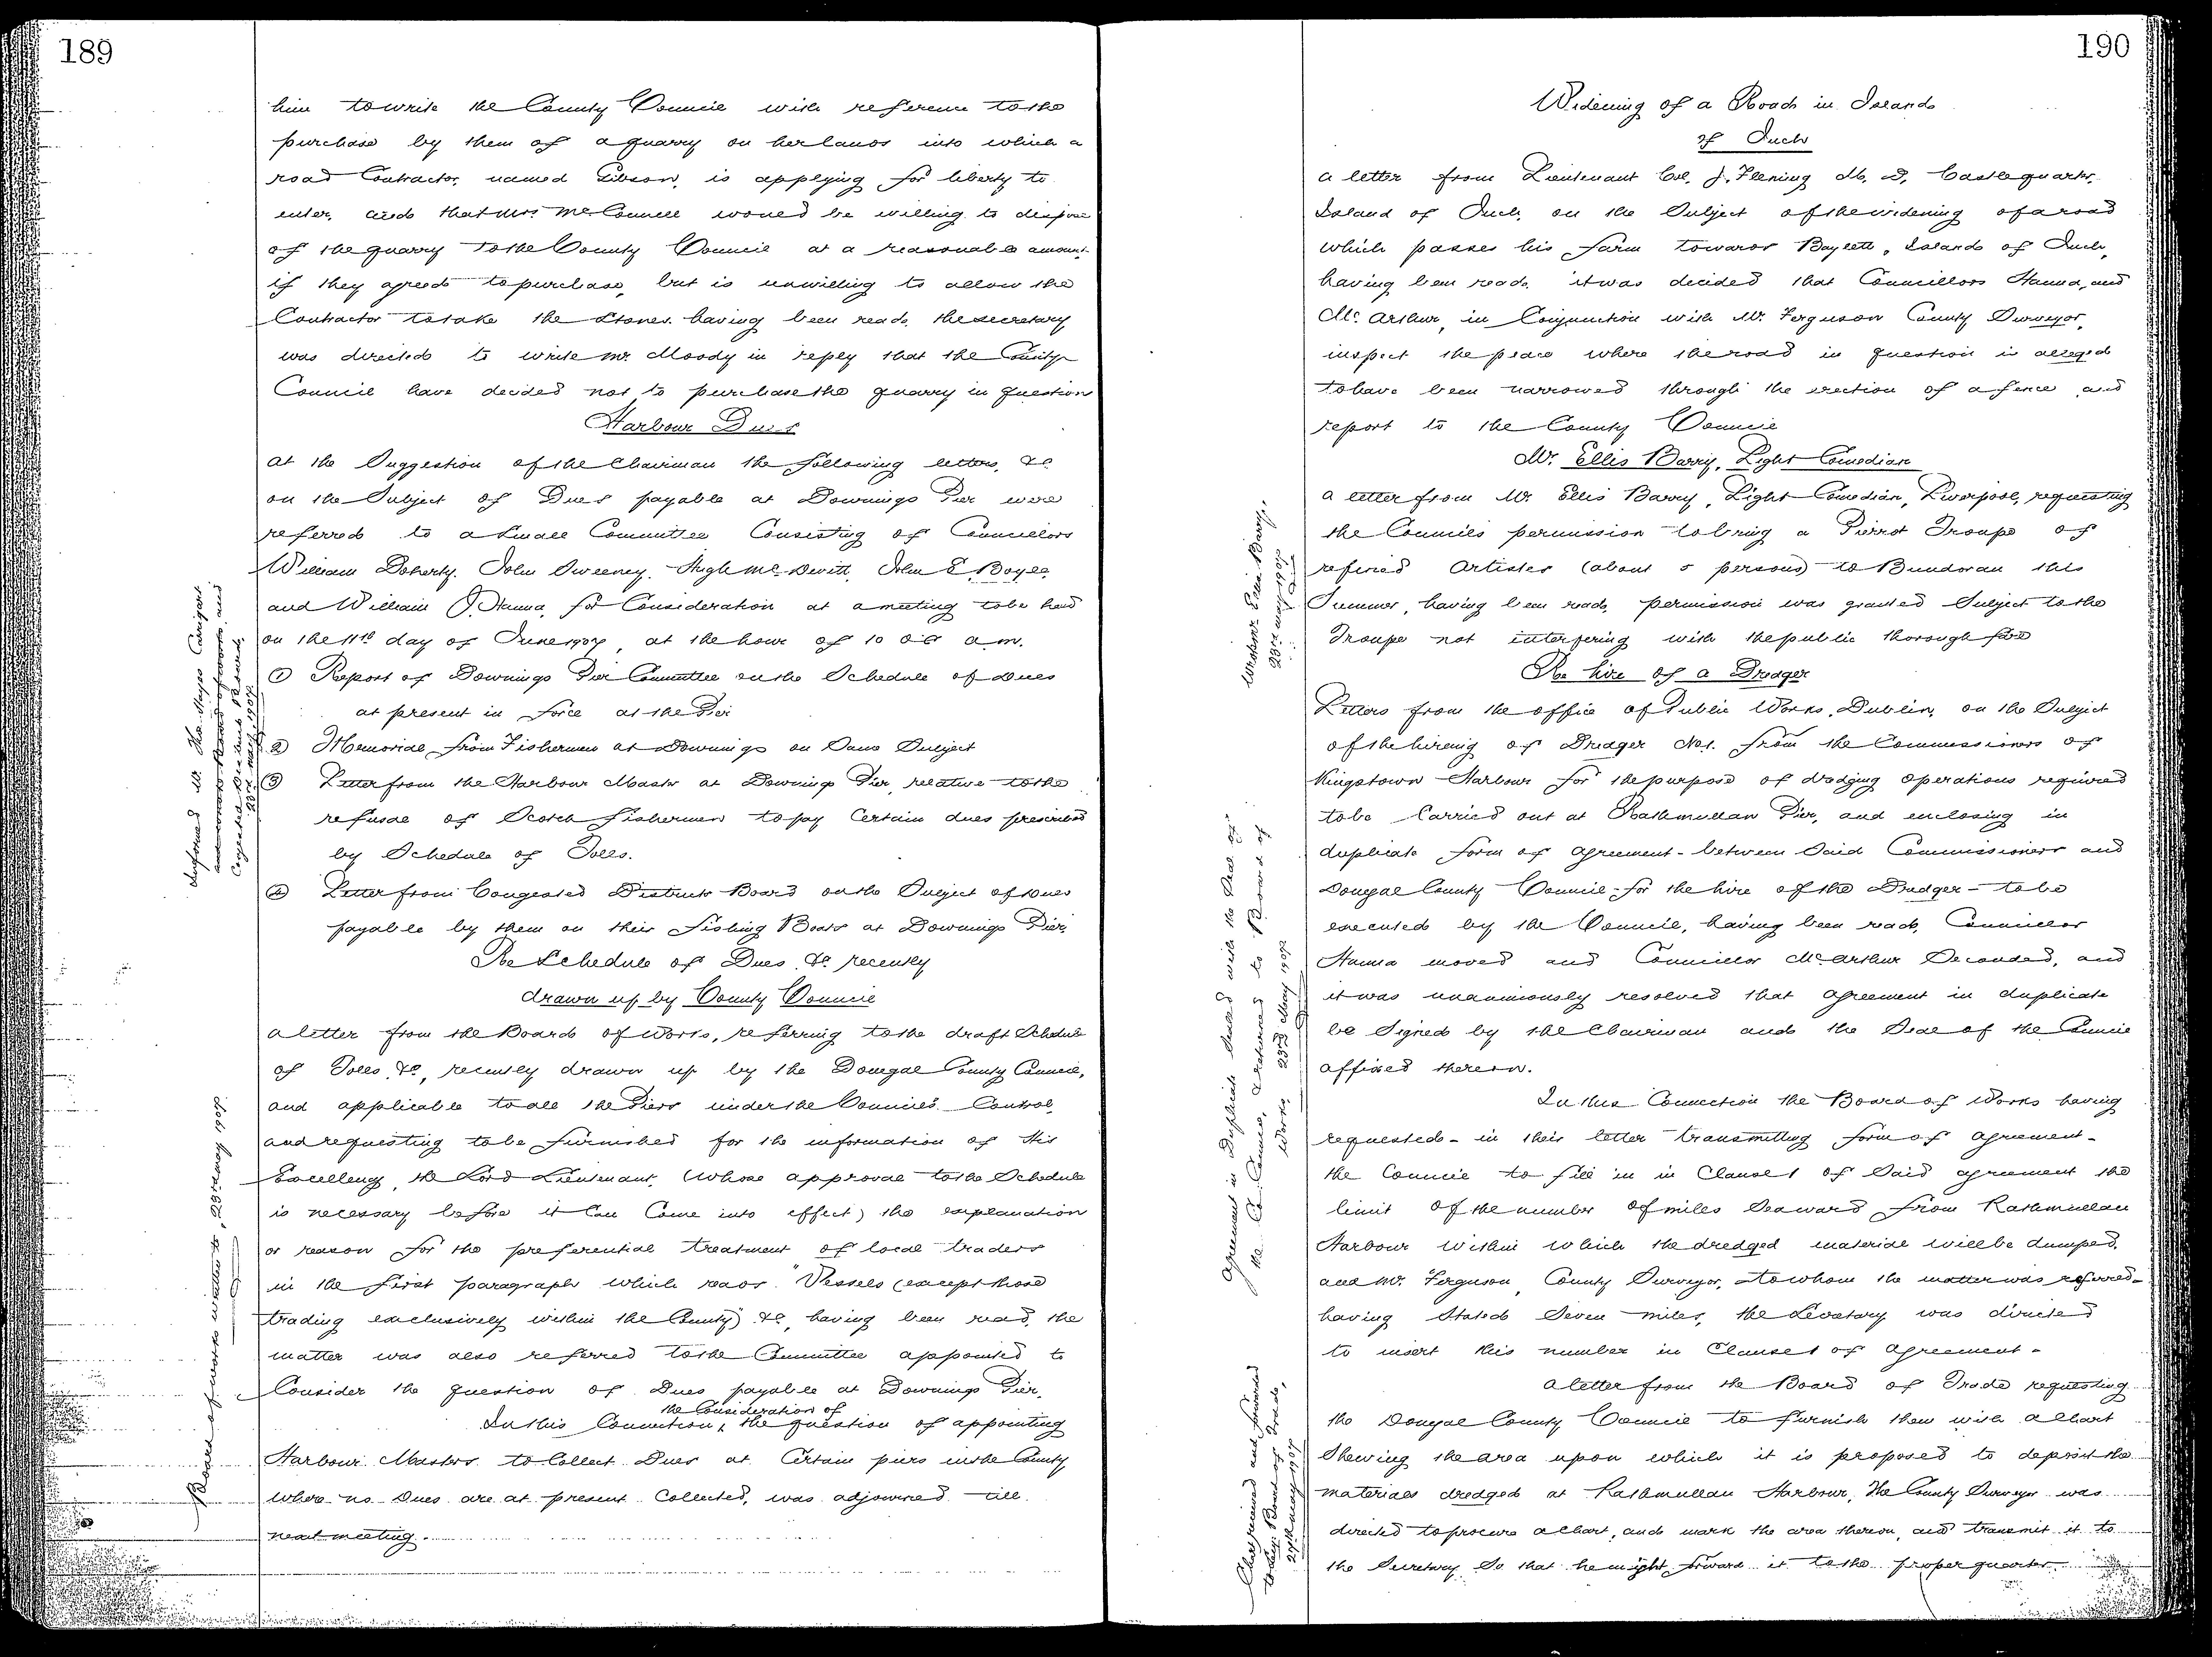 189
him to write the County Council with reference to the
purchase by them of a quarry on her lands into which a
road Contractor, named Gibson, is applying for liberty to
enter, and that Mrs McConnell would be willing to dispose
of the quarry to the County Council at a reasonable amount
if they agreed to purchase, but is unwilling to allow the
Contractor to take the stones having been read, the secretary
was directed to write Mr. Moody in reply that the County
Council have decided not to purchase the quarry in question
Harbour Dues
at the Suggestion of the Chairman the following letters, &c
on the Subject of Dues payable at Downings Pier were
referred to a small Committee Consisting of Councillors
William Doherty, John Sweeney, Hugh McDevitt, John E. Boyle,
and William J. Hanna, for Consideration at a meeting to be held
on the 11th day of June 1907, at the hour of 10 o'c a.m.
① Report of Downings Pier Committee on the Schedule of Dues
at present in force at the Pier
② Memorial from Fishermen at Downings on Same Subject
③ Letter from the Harbour Master at Downings Pier, relative to the
refusal of Scotch Fishermen to pay Certain dues prescribed
by Schedule of Tolls.
④ Letter from Congested Districts Board on the Subject of Dues
payable by them on their Fishing Boats at Downings Pier.
Re Schedule of Dues &c recently
drawn up by County Council
a letter from the Board of Works, referring to the draft Schedule
of Tolls, &c, recently drawn up by the Donegal County Council,
and applicable to all the Piers under the Council's Control,
and requesting to be furnished for the information of His
Excellency, the Lord Lieutenant, (whose approval to the Schedule
is necessary before it Can Come into effect) the explanation
or reason for the preferential treatment of local traders
in the first paragraph which reads "Vessels (except those
trading exclusively within the County) &c, having been read, the
matter was also referred to the Committee appointed to
Consider the question of Dues payable at Downings Pier.
the Consideration of
In this Connection, the question of appointing
Harbour Masters to Collect Dues at Certain piers in the County
where no Dues are at present Collected, was adjourned till
next meeting.
Board of works written to, 23rd May 1907
190
Widening of a Road in Island
of Inch
a letter from Lieutenant Col. J. Fleming M. D, Castlequarter,
Island of Inch, on the Subject of the widening of a road
which passes his farm towards Baylett, Island of Inch,
having been read, it was decided that Councillors Hanna, and
McArthur, in Conjunction with Mr. Ferguson County Surveyor,
inspect the place where the road in question is alleged
to have been narrowed through the erection of a fence and
report to the County Council
Mr. Ellis Barry, Light Comedian
a letter from Mr Ellis Barry, Light Comedian, Liverpool, requesting
the Council's permission to bring a Pierrot Troupe of
refined Artistes (about 5 persons) to Bundoran this
Summer, having been read, permission was granted Subject to the
Troupe not interfering with the public thoroughfare
Re hire of a Dredger
Letters from the office of Public Works, Dublin, on the Subject
of the hireing of Dredger No 1. from the Commissioners of
Kingstown Harbour for the purpose of dredging operations required
to be Carried out at Rathmullan Pier, and enclosing in
duplicate form of agreement - between Said Commissioners and
Donegal County Council - for the hire of the Dredger - to be
executed by the Council, having been read, Councillor
Hanna moved and Councillor McArthur Seconded, and
it was unanimously resolved that agreement in duplicate
be Signed by the Chairman and the Seal of the Council
affixed thereon.
In this Connection the Board of Works having
requested - in their letter transmitting form of agreement -
the Council to fill in in Clause 1 of Said agreement the
limit of the number of miles Seaward from Rathmullan
Harbour within which the dredged material will be dumped,
and Mr. Ferguson, County Surveyor, - to whom the matter was referred -
having Stated Seven miles, the Secretary was directed
to insert this number in Clause 1 of Agreement -
a letter from the Board of Trade requesting
the Donegal County Council to furnish them with a Chart
Shewing the area upon which it is proposed to deposit the
materials dredged at Rathmullan Harbour, The County Surveyor was
directed to procure a Chart, and mark the area thereon, and transmit it to
the Secretary So that he might forward it to the proper quarter.
Wrote Mr Ellis Barry,
23rd May 1907
agreement in Duplicate Sealed with the Seal of
the Co Council, & returned to Board of
Works 23rd May 1907